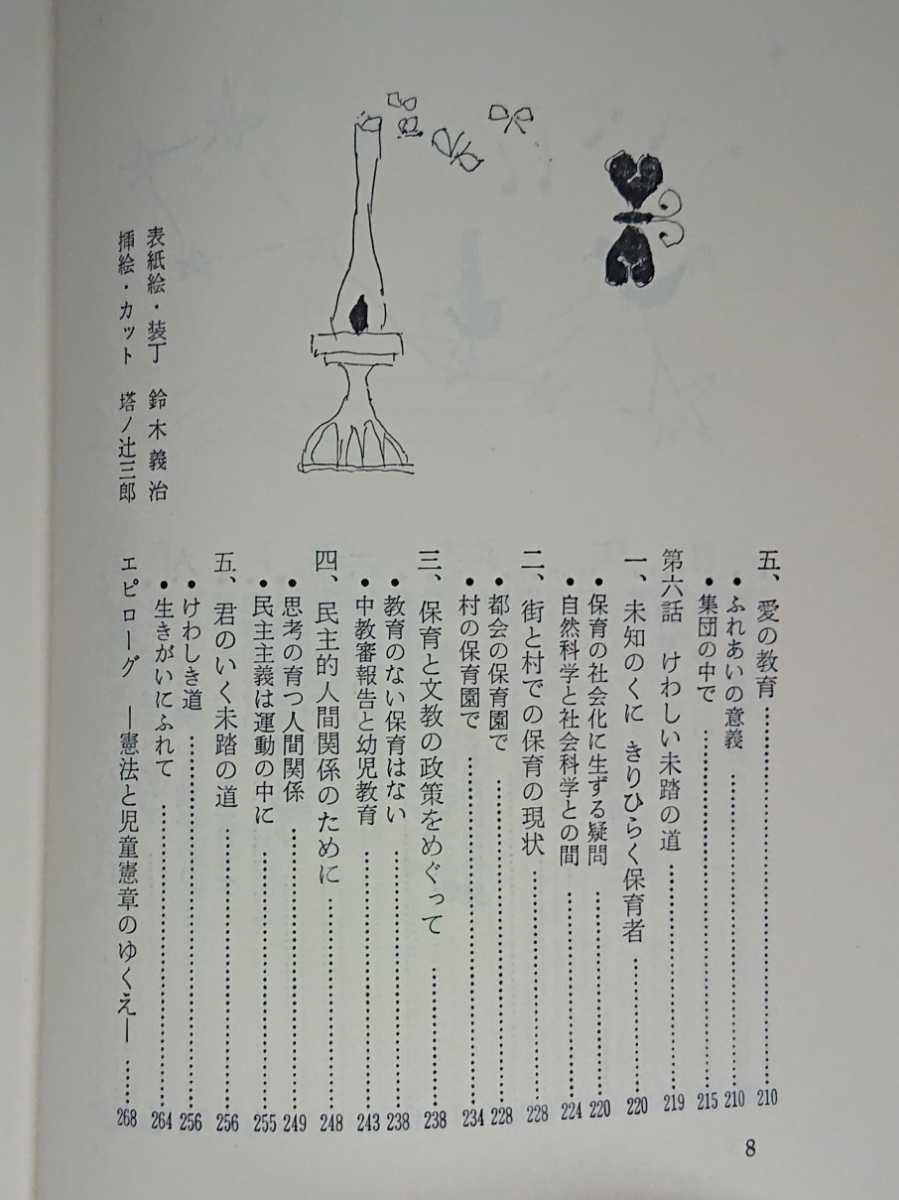 五、愛の教育……210
●ふれあいの意義……210
●集団の中で……215
第六話　けわしい未踏の道……219
一、未知のくに　きりひらく保育者……220
●保育の社会化に生ずる疑問……220
●自然科学と社会科学との間……224
二、街と村での保育の現状……228
●都会の保育園で……228
●村の保育園で……234
三、保育と文教の政策をめぐって……238
●教育のない保育はない……238
●中教審報告と幼児教育……243
四、民主的人間関係のために……248
●思考の育つ人間関係……249
●民主主義は運動の中に……255
五、君のいく未踏の道……256
●けわしき道……256
●生きがいにふれて……264
エピローグ　―憲法と児童憲章のゆくえ―……268
表紙絵・装丁　鈴木義治
挿絵・カット　塔ノ辻三郎
8